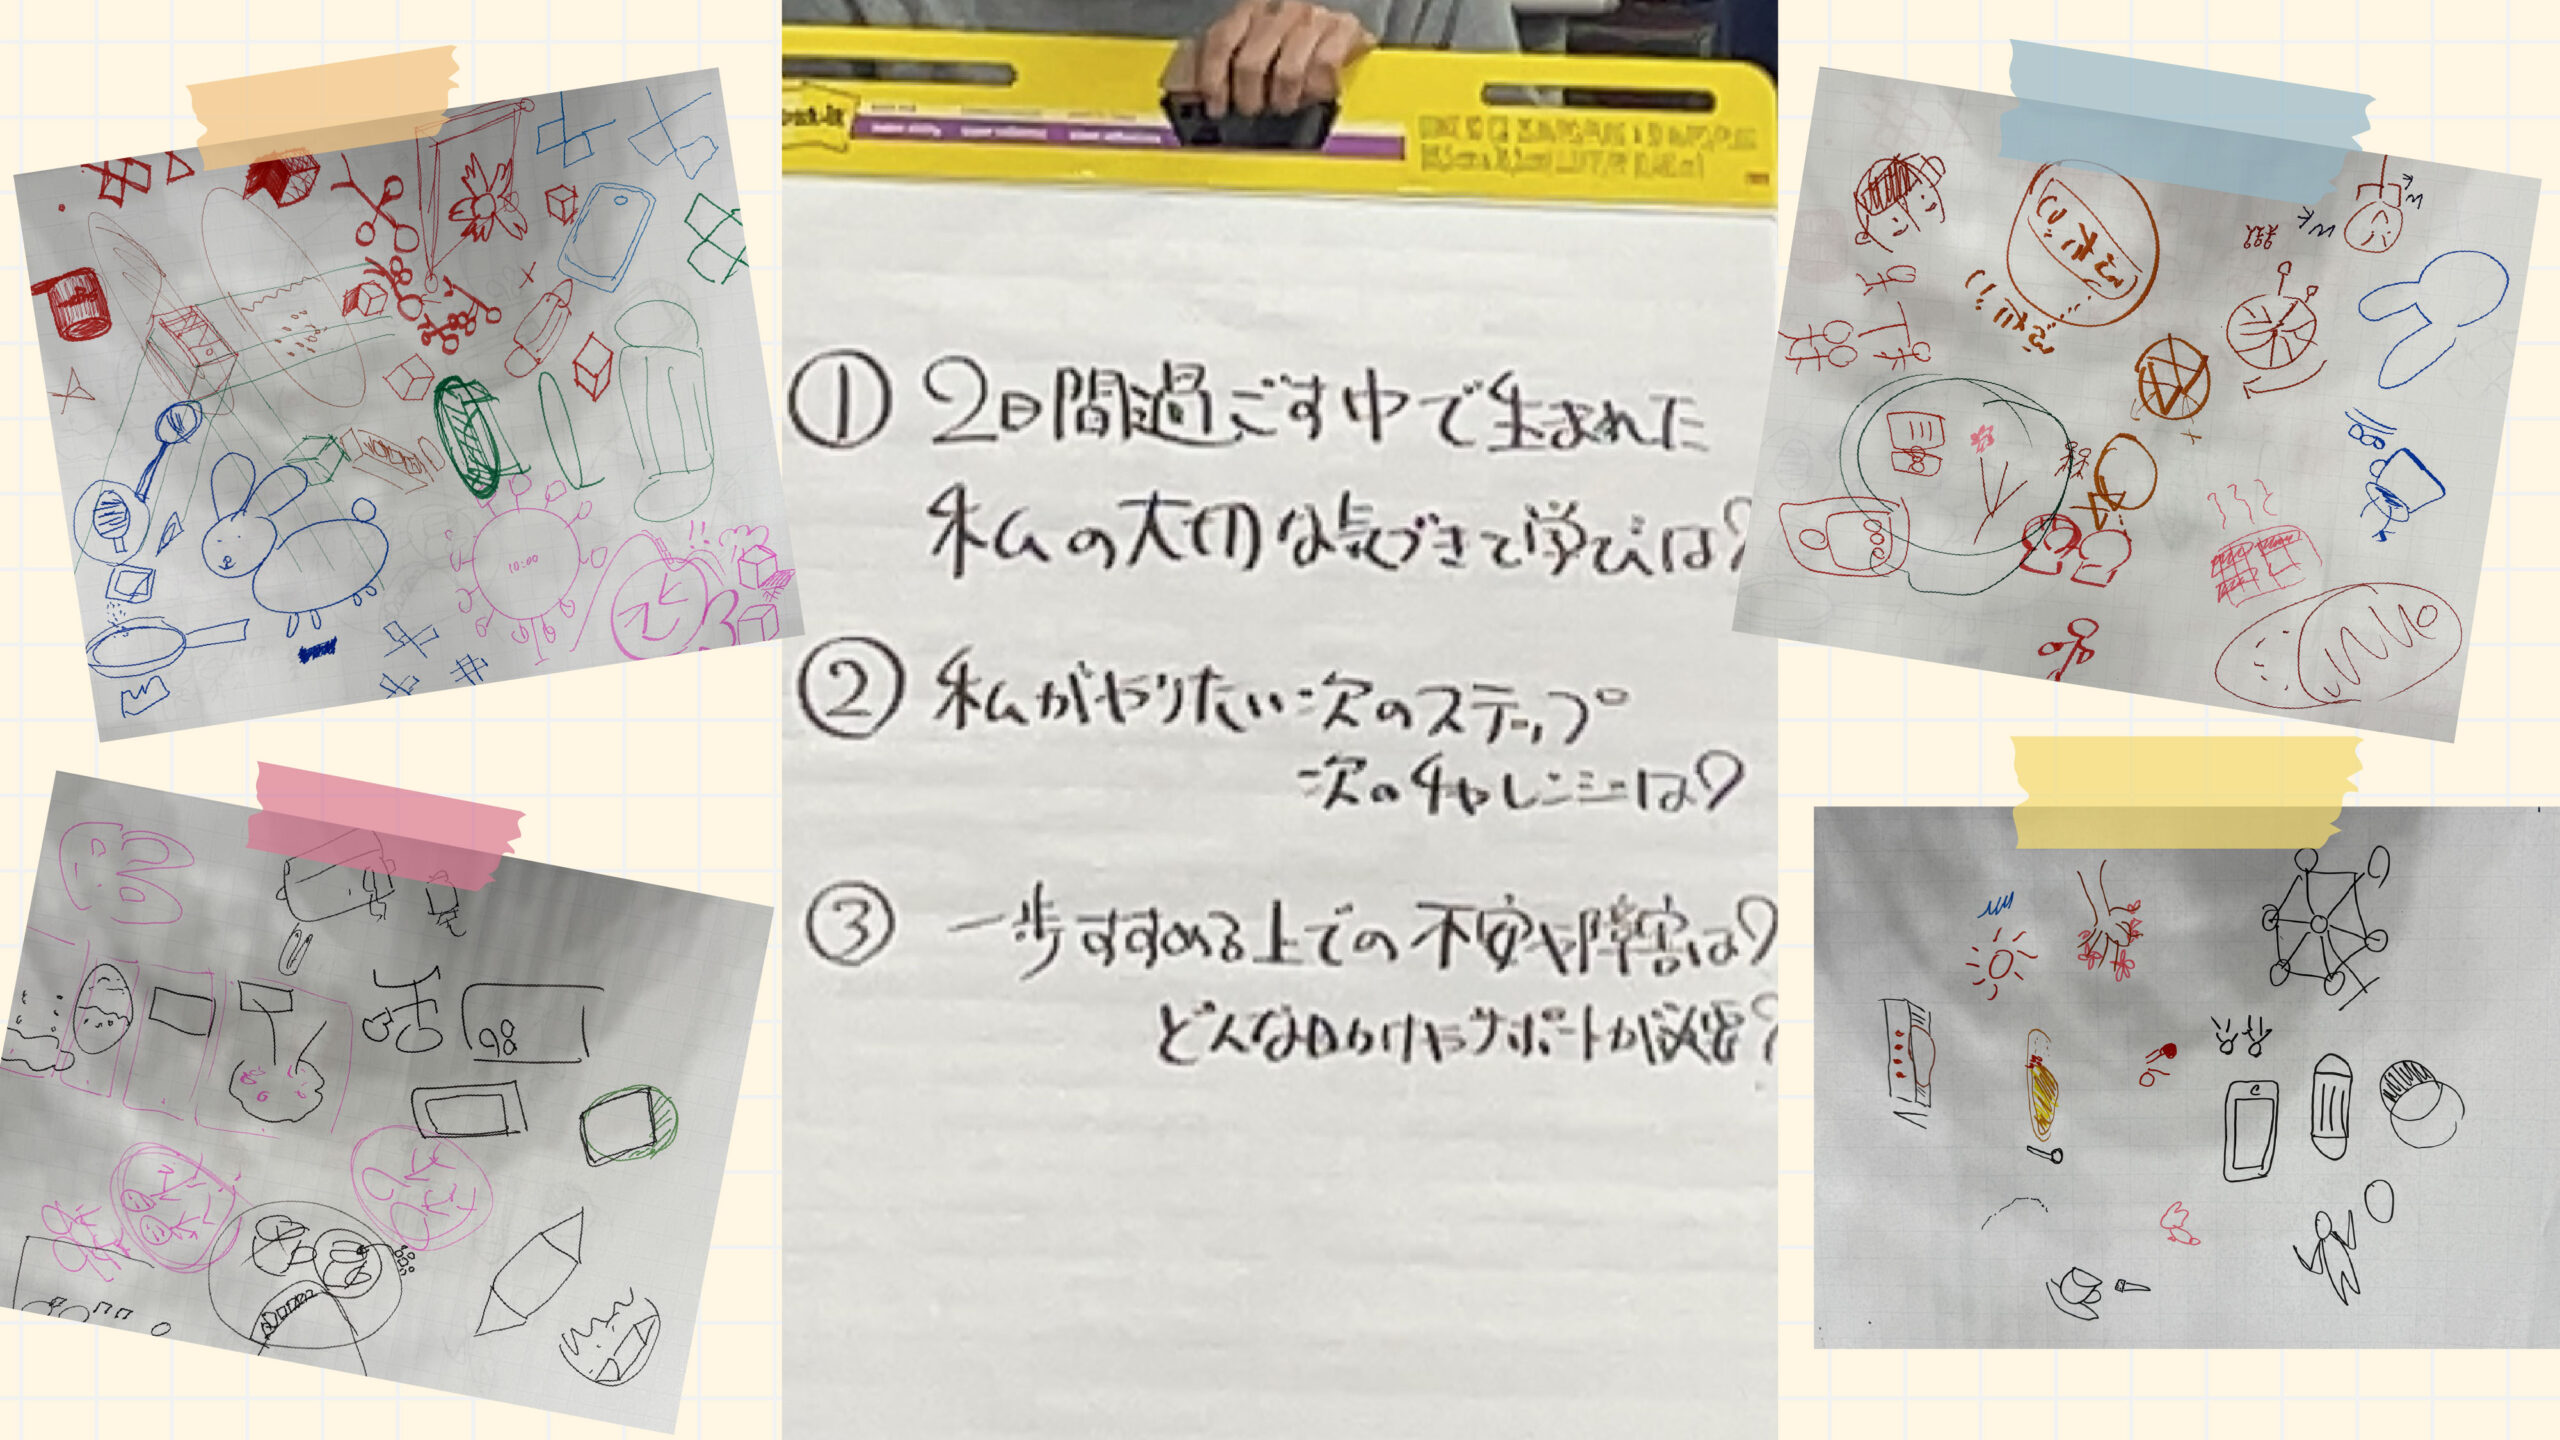 ① 2日間過ごす中で生まれた
私の大切な気づきと学びは?
② 私がやりたい次のステップ
次のチャレンジは?
③ 一歩すすめる上での不安や障害は?
どんな助けやサポートが必要?
10:00